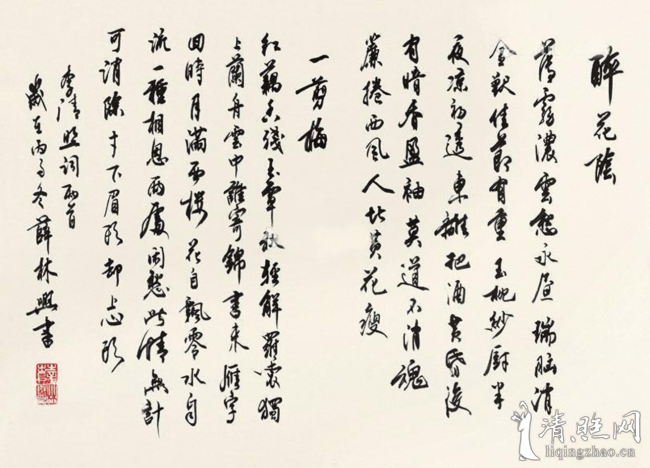 醉花陰
薄霧濃雲愁永晝瑞腦消
金獸佳節有重玉枕紗厨半
夜凉初透東籬把酒黄昏後
有暗香盈袖莫道不消魂
簾捲西風人比黄花瘦
一剪梅
紅藕香殘玉簟秋輕解羅裳獨
上蘭舟雲中誰寄錦書來雁字
回時月滿西樓花自飄零水自
流一種相思兩處閒愁此情無計
可消除才下眉頭却上心頭
李清照詞兩首
歲在丙子冬薛林興書
清照网
liqingzhao.cn